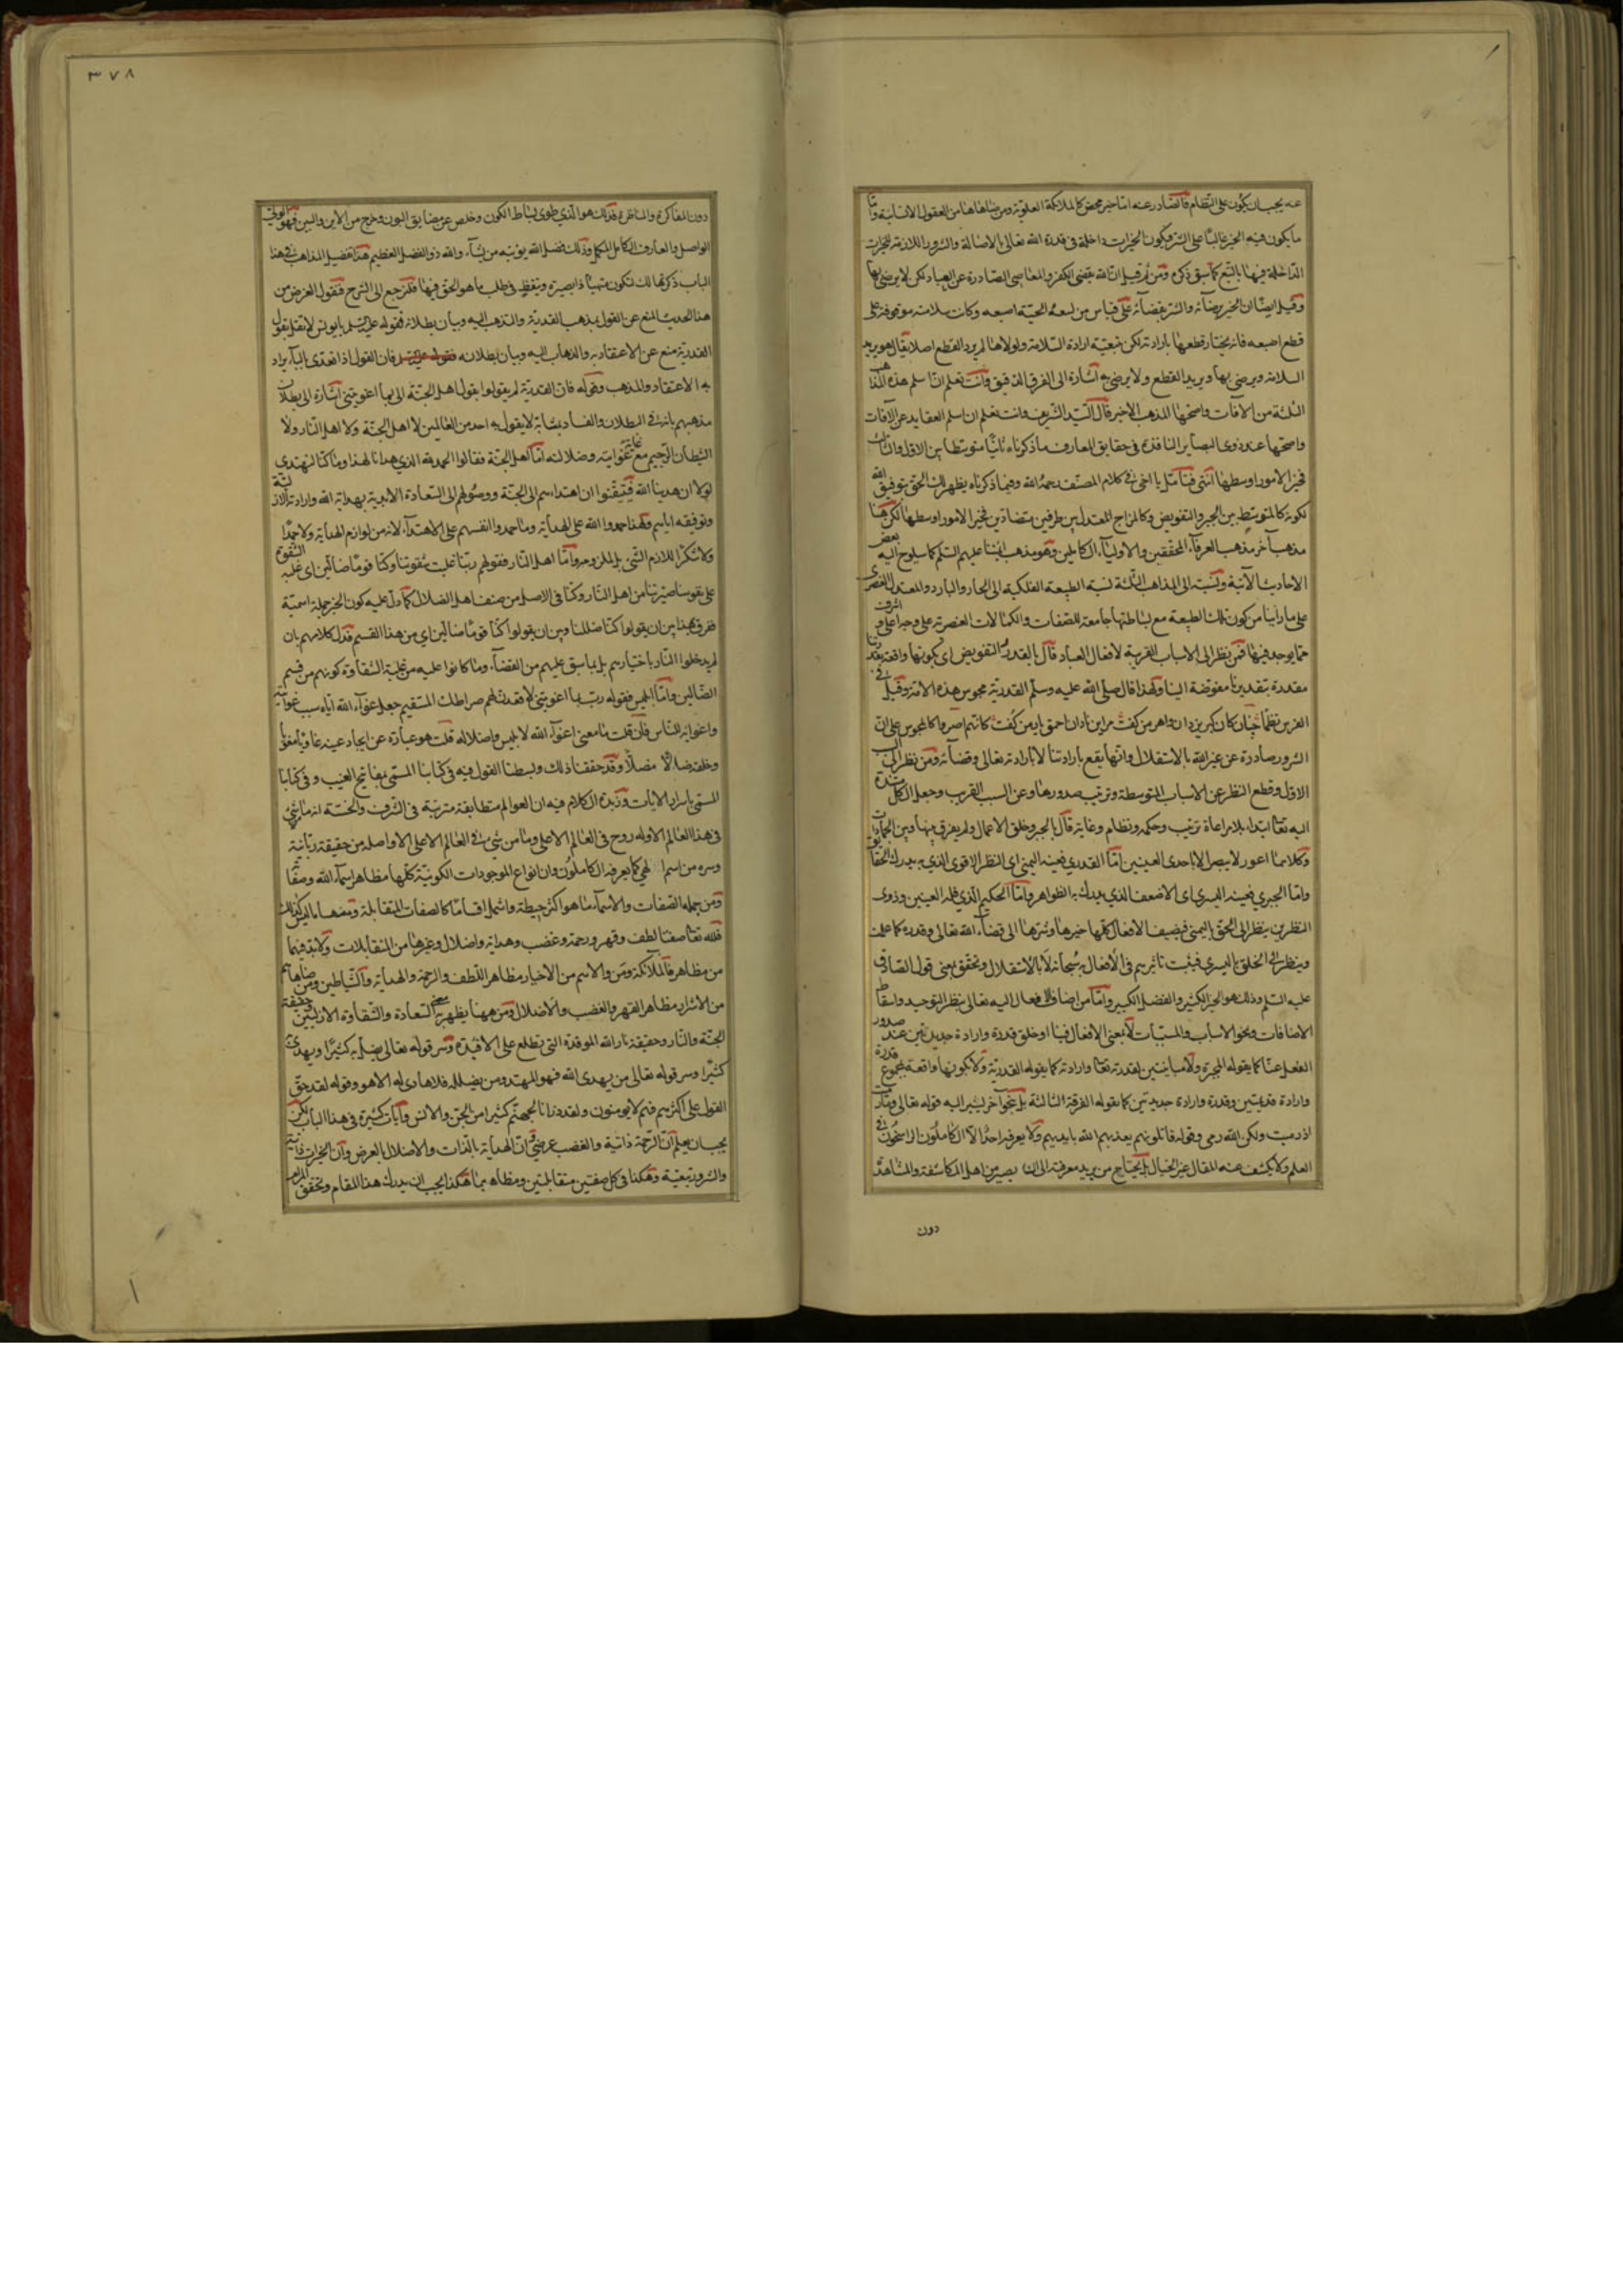 عنه يجب ان يكون على النظام فالصادر عنه اما خير محض كالملائكة العلوية ومن ضاهاها من العقول الانسانية واما
ما يكون فيه الخير غالبا على الشر فيكون الخيرات داخلة في قدرة الله تعالى بالاصالة والشرور اللازمة للخيرات
الداخلة فيها بالتبع كما سبق ذكره ومن ثم قيل ان الله يقضى الكفر والمعاصى الصادرة عن العباد لكن لا يرضى بها
وقيل ايضا ان الخير برضائه والشر بقضائه على قياس من لسعة الحية اصبعه وكانت سلامته موقوفة على
قطع اصبعه فانه يختار قطعها بارادته لكن بتبعية ارادة السلامة ولولاها لم يرد القطع اصلا يقال هو يريد
السلامة ويرضى بها ويريد القطع ولا يرضى به اشارة الى الفرق الدقيق وانت تعلم ان اسلم هذه المذاهب
الثلثة من الافات واصحها المذهب الاخير قال السيد الشريف وانت تعلم ان اسلم العقايد عن الآفات
واصحها عند ذوى البصاير النافذة في حقايق المعارف ما ذكرناه ثانيا متوسطا بين الاول والثالث
فخير الامور اوسطها انتهى فتأمل يا اخى في كلام المصنف رحمه الله وفيما ذكرناه يظهر لك الحق بتوفيق الله
لكونه كالمتوسط بين الجبر والتفويض وكالمزاج المعتدل بين طرفين متضادين فخير الامور اوسطها لكن هنا
مذهبا آخر مذهب العرفآء المحققين والاوليآء الكاملين وهو مذهب ائمتنا عليهم السلم كما سيلوح اليه بعض
الاحاديث الآتية ونسبته الى المذاهب الثلثة نسبة الطبيعة الفلكية الى الحار والبارد والمعتدل العنصرى
على ما رأينا من كون تلك الطبيعة مع بساطتها جامعة للصفات والكمالات العنصرية على وجه اعلى واشرف
مما يوجد فيها فمن نظر الى الاسباب القريبة لافعال العباد قال بالقدر والتفويض اى بكونها واقعة بقدرتنا
مقدرة بتقديرنا مفوضة الينا ولهذا قال صلى الله عليه وسلم القدرية مجوس هذه الامة وقيل فى
الفرس نظما چنان كان كبر يزدان واهرمن كفت مر اين نادان احمق ما ومن كفت كانهم اصروا كالمجوس على ان
الشرور صادرة عن غير الله بالاستقلال وانها يقع بارادتنا لا بارادته تعالى وقضائه ومن نظر الى السبب
الاول وقطع النظر عن الاسباب المتوسطة وترتيب صدورها وعن السبب القريب وجعل الكل مستندة
اليه تعالى ابتداء بلا مراعاة ترتيب وحكمة ونظام وغاية قال بالجبر وخلق الاعمال ولم يفرق بينها وبين الجمادات
وكلاهما اعور لا يبصر الا باحدى العينين اما القدرى فعينه اليمنى اى النظر الاقوى الذى به يدرك الحقايق
واما الجبرى فعينه اليسرى اى الاضعف الذى يدرك به الظواهر واما الحكيم الذى فله العينين وذوى
النظرين ينظر الى الحق باليمنى فيضيف الافعال كلها خيرها وشرها الى قضاء الله تعالى وقدره كما علمت
وينظر الى الخلق باليسرى فيثبت تاثيرهم فى الأفعال به سبحانه لا بالاستقلال وتحقق بمعنى قول الصادق
عليه السلم وذلك هو الخير الكثير والفضل الكبير واما من اضاف الافعال اليه تعالى بنظر التوحيد واسقاط
الاضافات ومحو الاسباب والمسببات لا بمعنى الافعال فينا او خلق قدرة وارادة جديدتين عند صدور
الفعل عنا كما يقوله المجبرة ولا مباينتين لقدرته تعالى وارادته كما يقوله القدرية ولا كونها واقعة بمجموع قدرة
وارادة قديمتين وقدرة وارادة جديدتين كما يقوله الفرقة الثالثة بل بنحو آخر يشير اليه قوله تعالى وما رميت
اذ رميت ولكن الله رمى وقوله قاتلوهم يعذبهم الله بايديهم ولا يعرفه احد الا الكاملون الراسخون فى
العلم ولا يكشف عنه المقال غير الخيال بل يحتاج من يريد معرفته الى ان يصير من اهل المكاشفة والمشاهدة
دون
٣٧٨
دون المفاكرة والمناظرة فذلك هو الذي طوى بساط الكون وخلص عن مضايق البون وخرج من الأين والبين فهو الولى
الواصل والعارف الكامل المكمل وذلك فضل الله يؤتيه من يشآء والله ذو الفضل العظيم هذا تفصيل المذاهب فى هذا
الباب ذكرتها لك لتكون متهيأ ذا بصيرة وتيقظ فى طلب ما هو الحق فيها فلنرجع الى الشرح فنقول الغرض من
هذا الحديث المنع عن القول بمذهب القدرية والذهاب اليه وبيان بطلانه فقوله عليه السلم يا يونس لا تقل بقول
القدرية منع عن الاعتقاد به والذهاب اليه وبيان بطلانه فان القول اذا تعدى بالباء يراد
به الاعتقاد والمذهب وقوله فان القدرية لم يقولوا بقول اهل الجنة الى بما اغويتنى اشارة الى بطلان
مذهبهم بانه فى البطلان والفساد بمثابة لا يقول به احد من العالمين لا اهل الجنة ولا اهل النار ولا
الشيطان الرجيم مع غاية غوايته وضلالته اما اهل الجنة فقالوا الحمد لله الذى هدانا لهذا وما كنا لنهتدى
لولا ان هدينا الله فتيقنوا ان اهتداءهم الى الجنة ووصولهم الى السعادة الابدية بهداية الله وارادته الازلية
وتوفيقه اياهم ولهذا حمدوا الله على الهداية وما حمدوا انفسهم على الاهتدآء لانه من لوازم الهداية ولا حمدا
ولا شكرا للازم الشئ بل لملزومه واما اهل النار فقولهم ربنا غلبت علينا شقوتنا وكنا قوما ضالين اى غلبة الشقوة
على نفوسنا صيرتنا من اهل النار وكنا فى الاصل من صنف اهل الضلال كما دل عليه كون الخبر جملة اسمية
ففرق هنا بين ان يقولوا كنا ضللنا وبين ان يقولوا كنا قوما ضالين اى من هذا القسم فدل كلامهم بان
لم يدخلوا النار باختيارهم بل بما سبق عليهم من القضآء وما كانوا عليه من غلبة الشقاوة كونهم من قسم
الضالين واما ابليس فقوله رب بما اغويتنى لاقعدن لهم صراطك المستقيم جعل اغوآء الله اياه سبب غوايته
واغوائه للناس فان قلت ما معنى اغوآء الله لابليس واضلاله قلت هو عبارة عن ايجاد عينه غاويا مغويا
وخلقه ضالا مضلا وقد حققنا ذلك وبسطنا القول فيه فى كتابنا المسمى بمفاتيح الغيب وفى كتابنا
المسمى باسرار الايات وزبدة الكلام فيه ان العوالم متطابقة مترتبة فى الشرف والخسة انه ما من شئ
فى هذا العالم الا وله روح فى العالم الاعلى وما من شئ فى العالم الاعلى الا واصله من حقيقة ربانية
وسره من اسم الهي كما يعرفه الكاملون وان انواع الموجودات الكونية كلها مظاهر اسمآء الله وصفاته
ومن جملة الصفات والاسمآء ما هو اكثر حيطة واشمل اقساما كالصفات المتقابلة ومنها ما ليس كذلك
فلله تعالى صفتا لطف وقهر ورحمة وغضب وهداية واضلال وغيرها من المتقابلات ولا بد فيها
من مظاهر فالملائكة ومن والاهم من الاخيار مظاهر اللطف والرحمة والهداية والشياطين ومن ضاهاهم
من الاشرار مظاهر القهر والغضب والاضلال ومن هيهنا يظهر معنى السعادة والشقاوة الازليتين وحقيقة
الجنة والنار وحقيقة نار الله الموقدة التى تطلع على الافئدة وسر قوله تعالى يضل به كثيرا ويهدى به
كثيرا وسر قوله تعالى من يهدى الله فهو المهتد ومن يضلله فلا هادى له الا هو وقوله لقد حق
القول على اكثرهم فهم لا يؤمنون ولقد ذرأنا لجهنم كثيرا من الجن والانس وآيات كثيرة فى هذا الباب لكن
يجب ان يعلم ان الرحمة ذاتية والغضب عرضى وان الهداية بالذات والاضلال بالعرض وان الخيرات ذاتية
والشرور تبعية وهكذا فى كل صفتين متقابلتين ومظاهرهما هكذا يجب ان يدرك هذا المقام وتحقق المرام